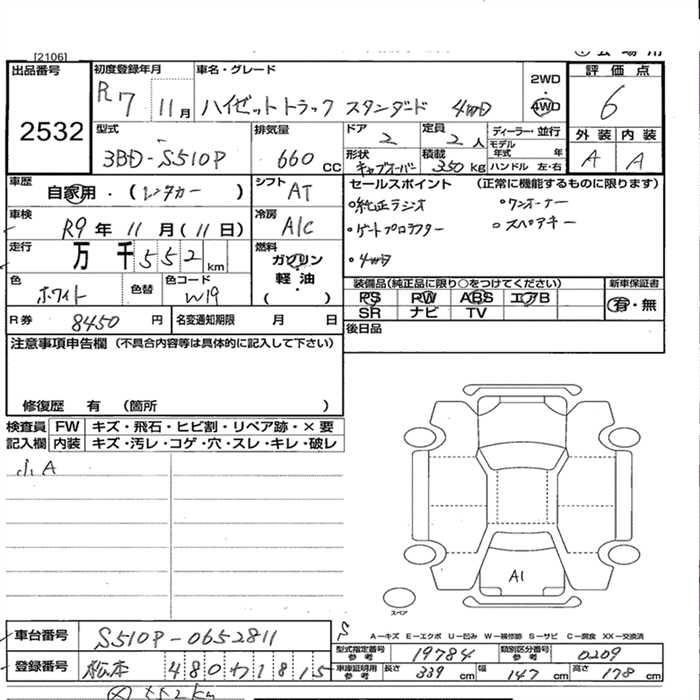 [2106]
出品番号
2532
初度登録年月
R7 11月
車名・グレード
ハイゼットトラック スタンダード 4WD
2WD
4WD
評価点
6
外装 内装
A A
型式
3BD-S510P
排気量
660 cc
ドア
2
定員
2人
ディーラー・並行
モデル年式 年
形状
キャブオーバー
積載
350 kg
ハンドル 左・右
車歴
自家用・(レンタカー)
シフト
AT
セールスポイント (正常に機能するものに限ります)
純正ラジオ
ワンオーナー
ゲートプロテクター
スペアキー
4WD
車検
R9年11月(11日)
冷房
A/C
走行
万 千 552 km
燃料
ガソリン
軽油
( )
色
ホワイト
色替
色コード
W19
装備品(純正品に限り○をつけてください)
PS PW ABS エアB
SR ナビ TV
新車保証書
有・無
R券
8450 円
名変通知期限 月 日
後日品
注意事項申告欄 (不具合内容等は具体的に記入して下さい)
修復歴 有 (箇所 )
検査員 FW キズ・飛石・ヒビ割・リペア跡・×要
記入欄 内装 キズ・汚レ・コゲ・穴・スレ・キレ・破レ
小A
A1
スペア
A－キズ E－エクボ U－凹み W－補修跡 S－サビ C－腐食 XX－交換済
車台番号
S510P-0652811
型式指定番号 参考
19784
類別区分番号 参考
0209
登録番号
松本 480 1815
車庫証明用 参考
長さ 339 cm
幅 147 cm
高さ 178 cm